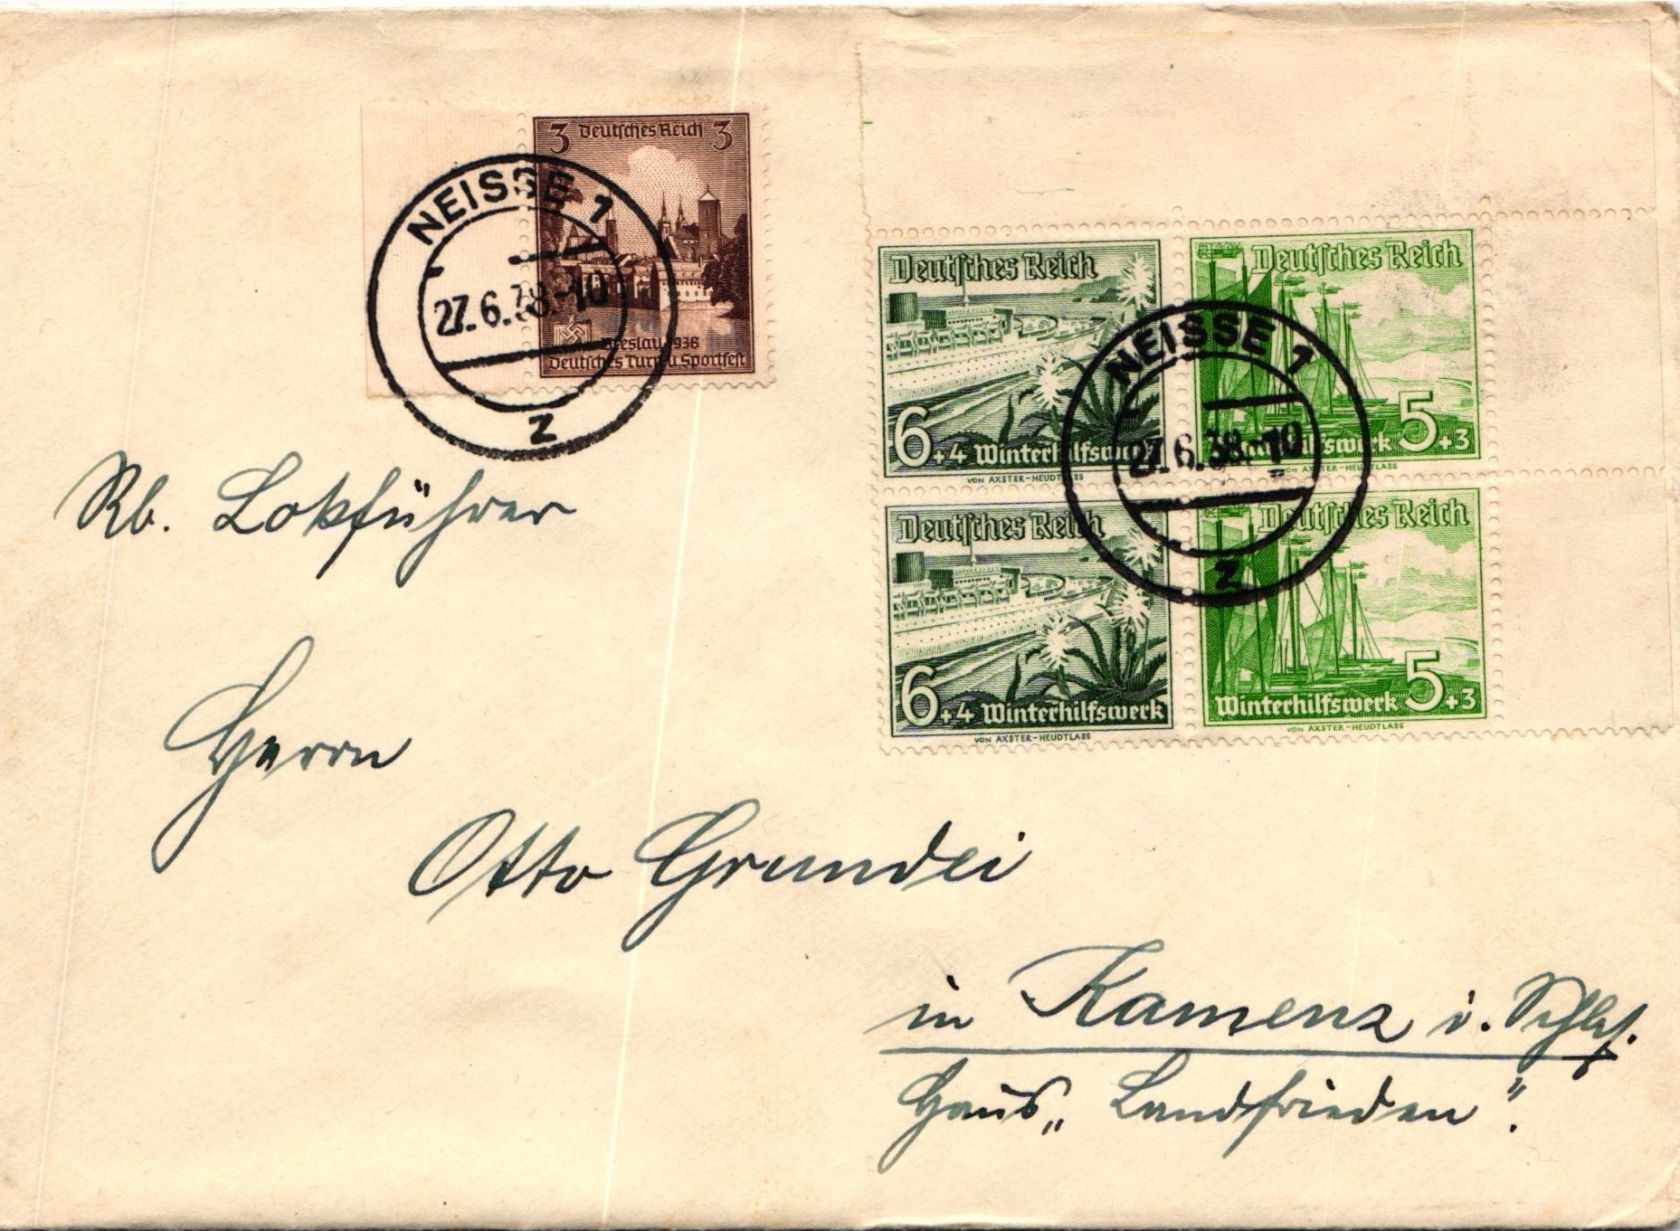 3 Deutsches Reich 3
Breslau 1938
Deutsches Turn u. Sportfest
NEISSE 1
27.6.38.-10
z
Deutsches Reich
6+4 Winterhilfswerk
VON AXSTER-HEUDTLASS
Deutsches Reich
Winterhilfswerk 5+3
VON AXSTER-HEUDTLASS
NEISSE 1
27.6.38.-10
z
Deutsches Reich
6+4 Winterhilfswerk
VON AXSTER-HEUDTLASS
Deutsches Reich
Winterhilfswerk 5+3
VON AXSTER-HEUDTLASS
Rb. Lokführer
Herrn
Otto Grundei
in Kamenz i. Schles.
Haus „Landfrieden".